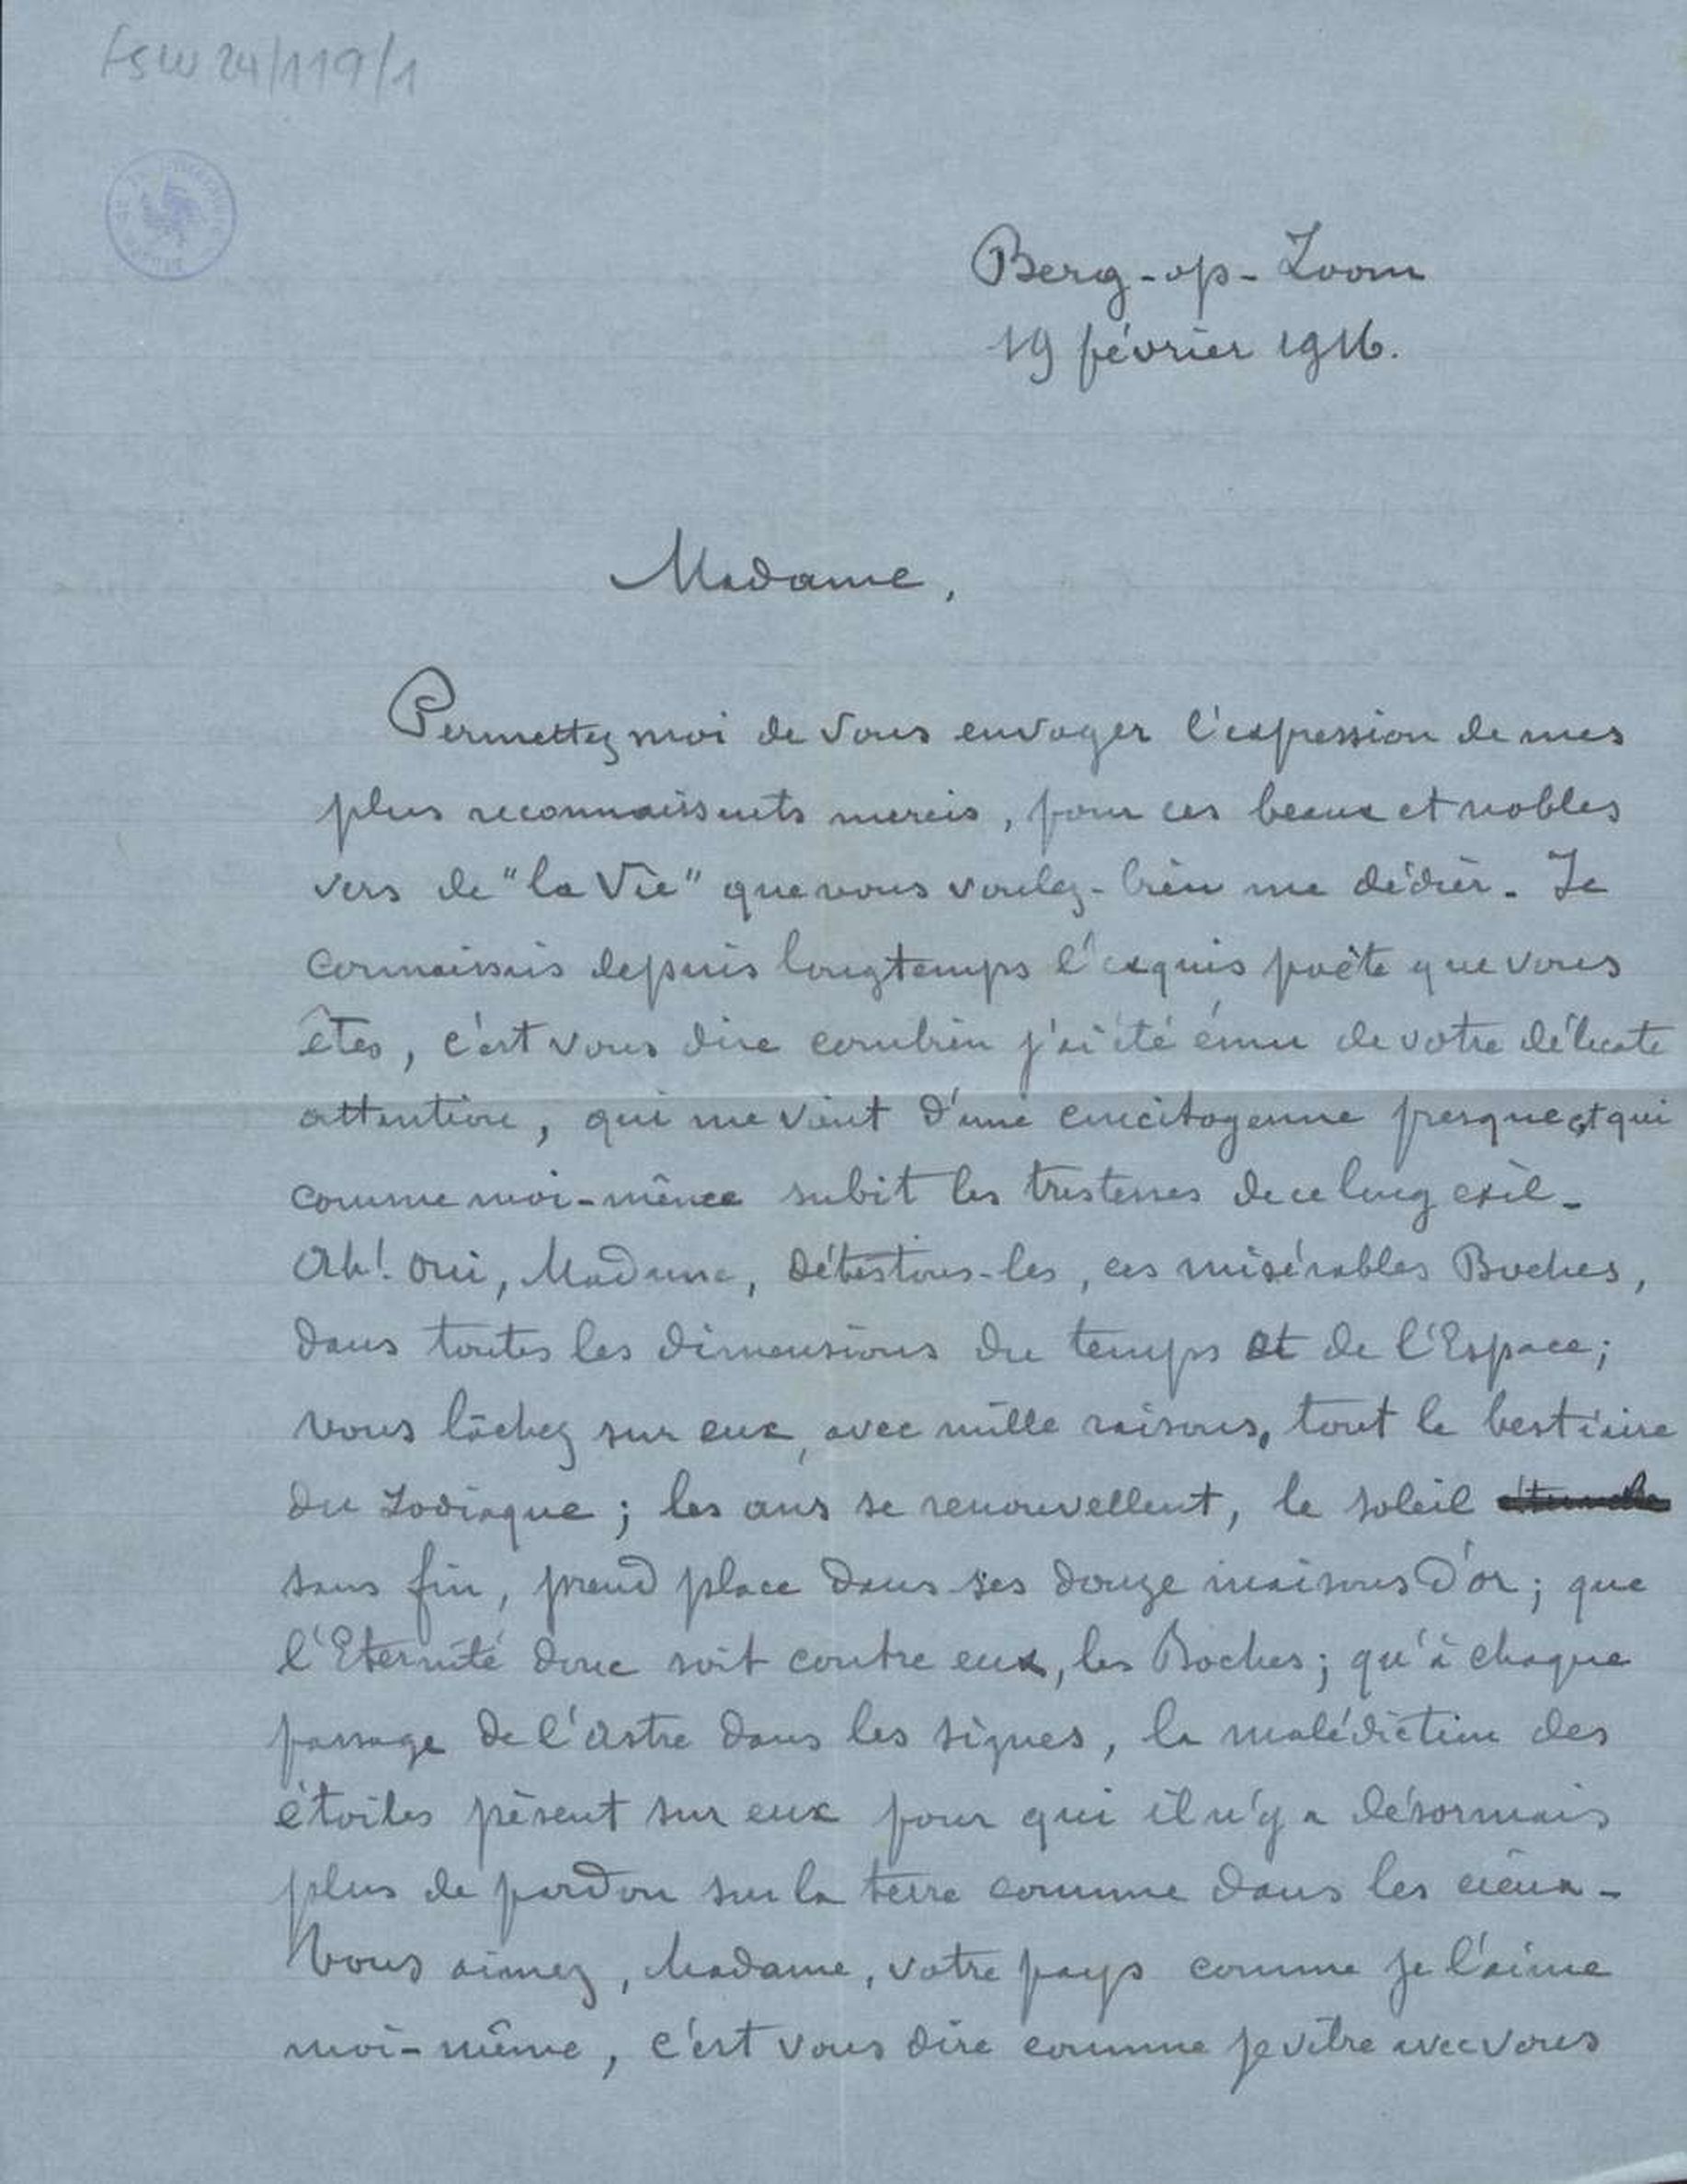 FSW 24/119/1
Berg-op-Zoom
19 février 1916.
Madame,
Permettez moi de vous envoyer l'expression de mes
plus reconnaissants mercis, pour ces beaux et nobles
vers de "la Vie" que vous voulez-bien me dédier. Je
connaissais depuis longtemps l'exquis poète que vous
êtes, c'est vous dire combien j'ai été ému de votre délicate
attention, qui me vient d'une concitoyenne presque et qui
comme moi-même subit les tristesses de ce long exil.
Ah! oui, Madame, détestons-les, ces misérables Boches,
dans toutes les dimensions du temps et de l'Espace;
vous lâchez sur eux, avec mille raisons, tout le bestiaire
du Zodiaque; les ans se renouvellent, le soleil
sans fin, prend place dans ses douze maisons d'or; que
l'Eternité donc soit contre eux, les Boches; qu'à chaque
passage de l'astre dans les signes, la malédiction des
étoiles pèsent sur eux pour qui il n'y a désormais
plus de pardon sur la terre comme dans les cieux.
Vous aimez, Madame, votre pays comme je l'aime
moi-même, c'est vous dire comme je vibre avec vous